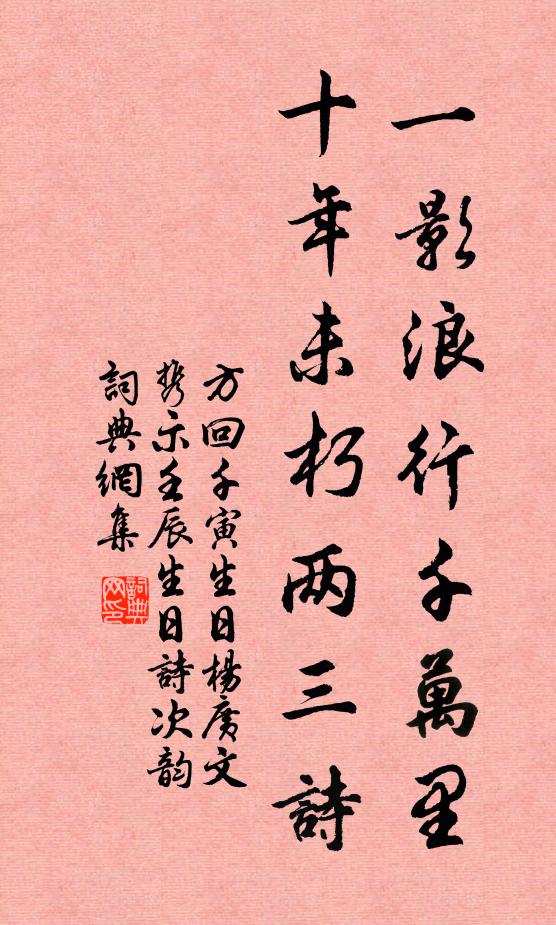 一影浪行千萬里
十年未朽两三詩
方回千寅生日楊廣文
携示壬辰生日詩次韵
詞典網集
詞典网印